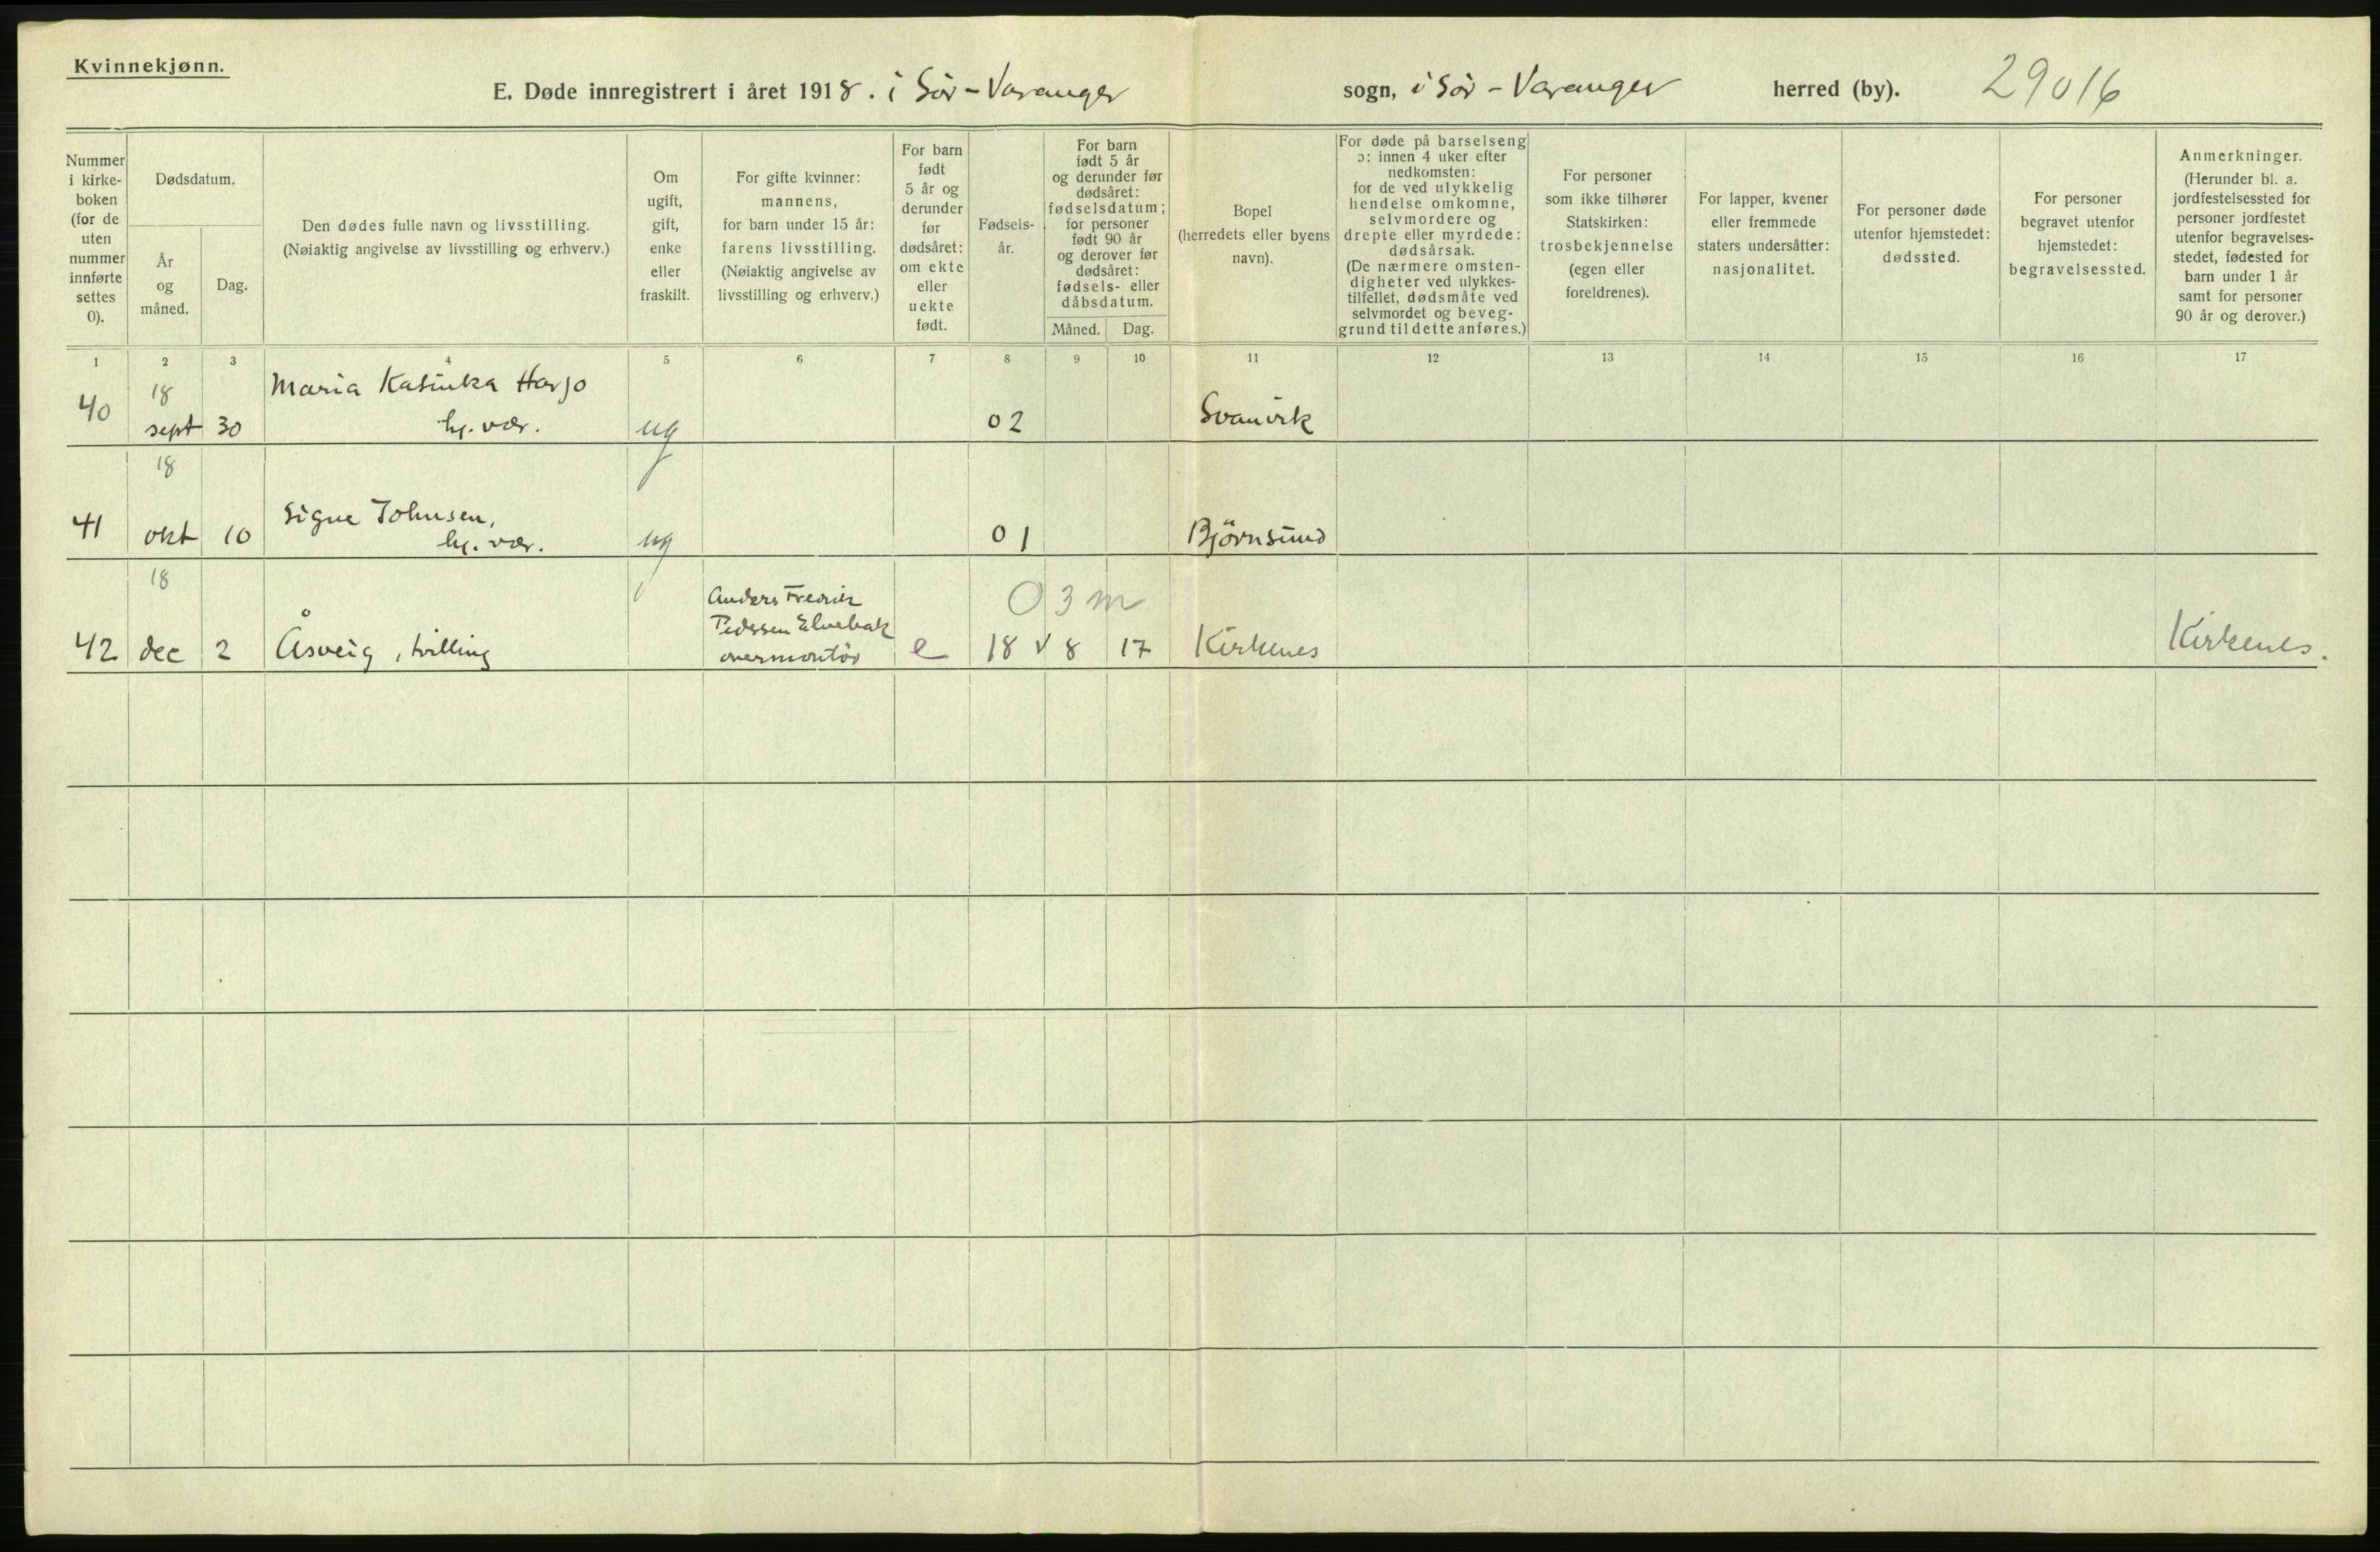 Kvinnekjønn.
E. Døde innregistrert i året 1918. i Sör-Varanger sogn, i Sör-Varanger herred (by). 29016
Nummer
i kirke-
boken
(for de
uten
nummer
innførte
settes
0).
Dødsdatum.
År
og
måned.
Dag.
Den dødes fulle navn og livsstilling.
(Nøiaktig angivelse av livsstilling og erhverv.)
Om
ugift,
gift,
enke
eller
fraskilt.
For gifte kvinner:
mannens,
for barn under 15 år:
farens livsstilling.
(Nøiaktig angivelse av
livsstilling og erhverv.)
For barn
født
5 år og
derunder
før
dødsåret:
om ekte
eller
uekte
født.
Fødsels-
år.
For barn
født 5 år
og derunder før
dødsåret:
fødselsdatum;
for personer
født 90 år
og derover før
dødsåret:
fødsels- eller
dåbsdatum.
Måned. Dag.
Bopel
(herredets eller byens
navn).
For døde på barselseng
ɔ: innen 4 uker efter
nedkomsten:
for de ved ulykkelig
hendelse omkomne,
selvmordere og
drepte eller myrdede:
dødsårsak.
(De nærmere omsten-
digheter ved ulykkes-
tilfellet, dødsmåte ved
selvmordet og beveg-
grund til dette anføres.)
For personer
som ikke tilhører
Statskirken:
trosbekjennelse
(egen eller
foreldrenes).
For lapper, kvener
eller fremmede
staters undersåtter:
nasjonalitet.
For personer døde
utenfor hjemstedet:
dødssted.
For personer
begravet utenfor
hjemstedet:
begravelsessted.
Anmerkninger.
(Herunder bl. a.
jordfestelsessted for
personer jordfestet
utenfor begravelses-
stedet, fødested for
barn under 1 år
samt for personer
90 år og derover.)
1 2 3 4 5 6 7 8 9 10 11 12 13 14 15 16 17
18 Maria Katinka Harjo
40 sept 30 hj. vær. ug 02 Svanvik
18
Signe Johnsen,
41 okt 10 hj. vær. ug 01 Björnsund
18 Anders Fredrik 0 3 m
Pedersen Elvebak
42 dec 2 Åsveig, tvilling overmontör e 18 v 8 17 Kirkenes Kirkenes.